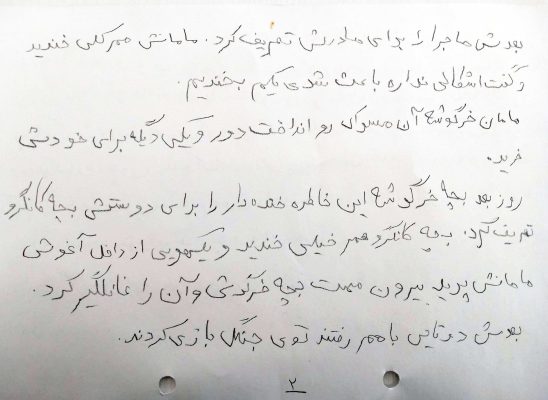 بعدش ماجرا را برای مادرش تعریف کرد. مامانش هم کلی خندید
و گفت اشکالی نداره باعث شدی یکم بخندیم.
مامان خرگوشه آن مسواک رو انداخت دور و یکی دیگه برای خودش
خرید.
روز بعد بچه خرگوشه این خاطره خنده دار را برای دوستش بچه کانگرو
تعریف کرد. بچه کانگرو هم خیلی خندید و یکهویی از داخل آغوش
مامانش پرید بیرون سمت بچه خرگوش و آن را غافلگیر کرد.
بعدش دوتایی با هم رفتند توی جنگل بازی کردند.
۲